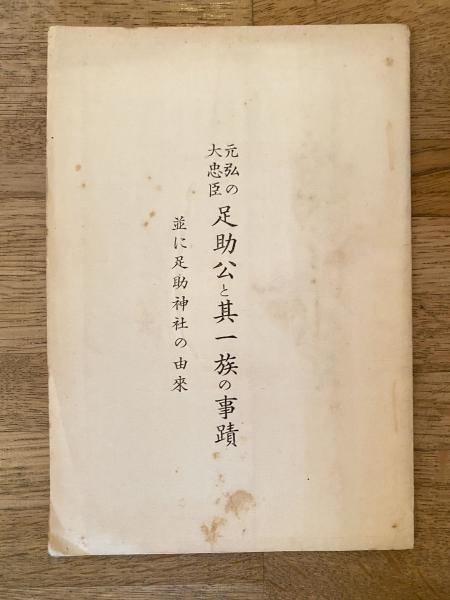 元弘の
大忠臣
足助公と其一族の事蹟
並に足助神社の由來